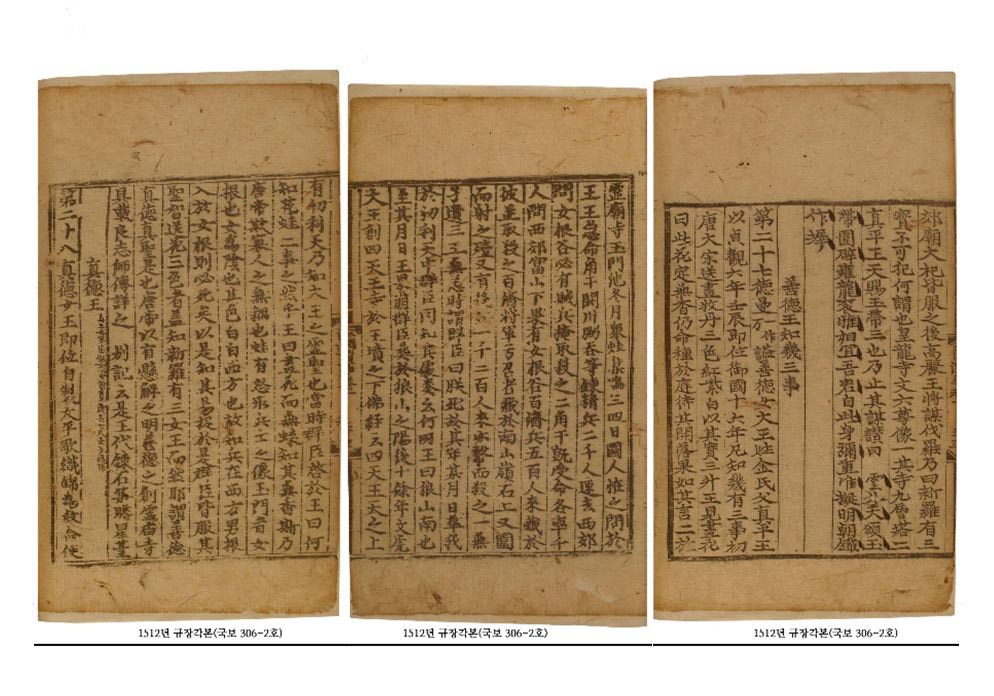 郊廟大祀皆服之後高麗王將謀伐羅乃曰新羅有三
寳不可犯何謂也皇龍寺丈六尊像一其寺九層塔二
真平王天賜玉帶三也乃止其謀讃曰 雲外天頒玉
帶圍辟雍龍衮雅相宜吾君自此身彌重准擬明朝鐵
作墀
善德王知幾三事
第二十七德曼 一作万 諡善德女大王姓金氏父真平王
以貞觀六年壬辰即位御國十六年凡知幾有三事初
唐太宗送畫牧丹三色紅紫白以其實三升王見畫花
曰此花定無香仍命種於庭待其開落果如其言二於
1512년 규장각본(국보 306-2호)
靈廟寺玉門池冬月衆蛙集鳴三四日國人恠之問於
王王急命角干閼川弼呑等鍊精兵二千人速去西郊
問女根谷必有賊兵掩取殺之二角干旣受命各率千
人問西郊富山下果有女根谷百濟兵五百人來藏於
彼並取殺之百濟將軍亐召者藏於南山嶺石上又圍
而射之殪又有後兵一千二百人來亦擊而殺之一無
孑遺三王無恙時謂群臣曰朕死於某年某月日葬我
於忉利天中群臣罔知其處奏云何所王曰狼山南也
至其月日王果崩群臣葬於狼山之陽後十餘年文虎
大王創四天王寺於王墳之下佛經云四天王天之上
1512년 규장각본(국보 306-2호)
有忉利天乃知大王之靈聖也當時群臣啓於王曰何
知花蛙二事之然乎王曰畫花而無蝶知其無香斯乃
唐帝欺寡人之無耦也蛙有怒形兵士之像玉門者女
根也女爲陰也其色白白西方也故知兵在西方男根
入於女根則必死矣以是知其易捉於是群臣皆服其
聖智送花三色者盖知新羅有三女王而然耶謂善德
真德真聖是也唐帝以有懸解之明善德之創靈廟寺
具載良志師傳詳之 別記云是王代鍊石築瞻星臺
真德王
第二十八真德女王即位自製大平歌織錦爲紋命使
1512년 규장각본(국보 306-2호)